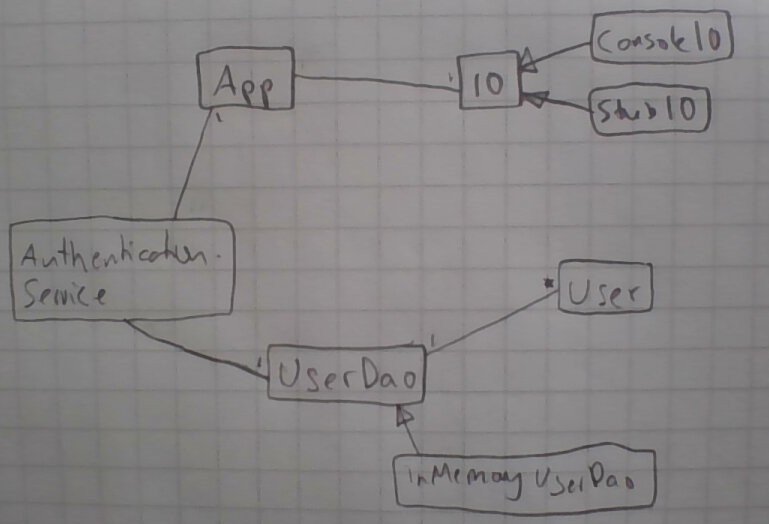 Console IO
App
1
IO
Stub IO
1
Authentication
Service
* User
1
1
UserDao
inMemory UserDao